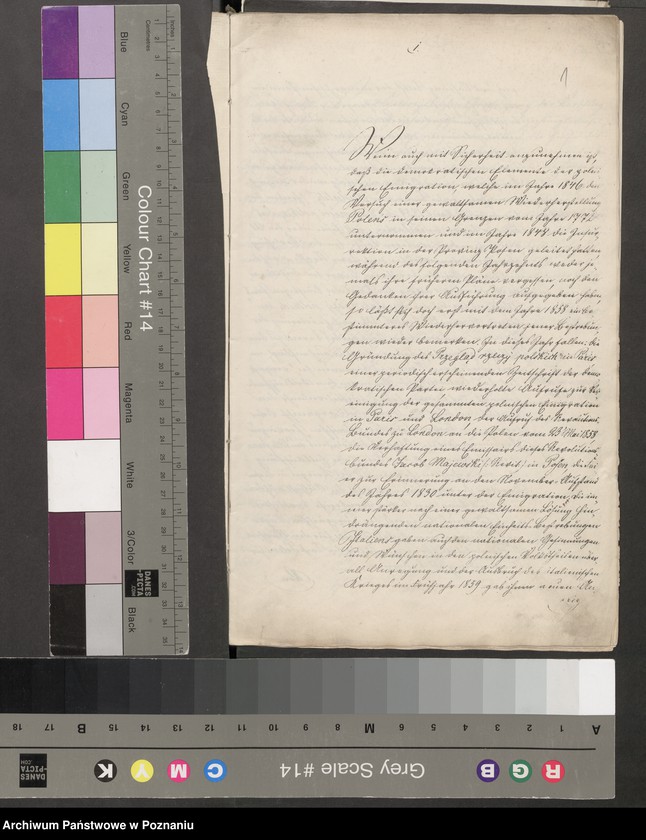 1
Wenn auch mit Sicherheit anzunehmen ist,
daß die demokratischen Elemente der polni-
schen Emigration, welche im Jahre 1846 den
Versuch einer gewaltsamen Wiederherstellung
Polens in seinen Grenzen vom Jahre 1772
unternommen und im Jahre 1848 die Insur-
rektion in der Provinz Posen geleitet hatten
während des folgenden Jahrzehnts weder je-
mals ihre früheren Pläne vergessen, noch den
Gedanken ihrer Ausführung aufgegeben haben,
so läßt sich doch erst mit dem Jahre 1858 ein be-
stimmteres Wiederhervortreten jener Bestrebun-
gen wieder bemerken. In dieses Jahr fallen: die
Gründung des Przegląd rzeczy polskich in Paris
einer periodisch erscheinenden Zeitschrift der demo-
kratischen Partei, wiederholte Aufrufe zur Ver-
einigung der gesammten polnischen Emigration
in Paris und London, der Aufruf des Revolutions-
Bundes zu London an die Polen vom 23 Mai 1858
die Verhaftung eines Emissairs dieses Revolutions-
bundes Jacob Majewski in Posen, die Fei-
er zur Erinnerung an den November-Aufstand
des Jahres 1830 unter der Emigration; die im-
mer stärker nach einer gewaltsamen Lösung hin-
drängenden nationalen Einheits-Bestrebungen
Italiens gaben auch den nationalen Gesinnungen
und Wünschen in den polnischen Landestheilen über-
all Anregung und der Ausbruch des italienischen
Krieges im Frühjahr 1859 gab ihnen neuen
Colour Chart #14
Blue
Cyan
Green
Yellow
Red
Magenta
White
3/Color
Black
Inches
Centimetres
DANES
-PICTA
.COM
Grey Scale #14
A 1 2 3 4 5 6 M 8 9 10 11 12 13 14 15 B 17 18
R G B C M Y K
DANES
-PICTA
.COM
Archiwum Państwowe w Poznaniu